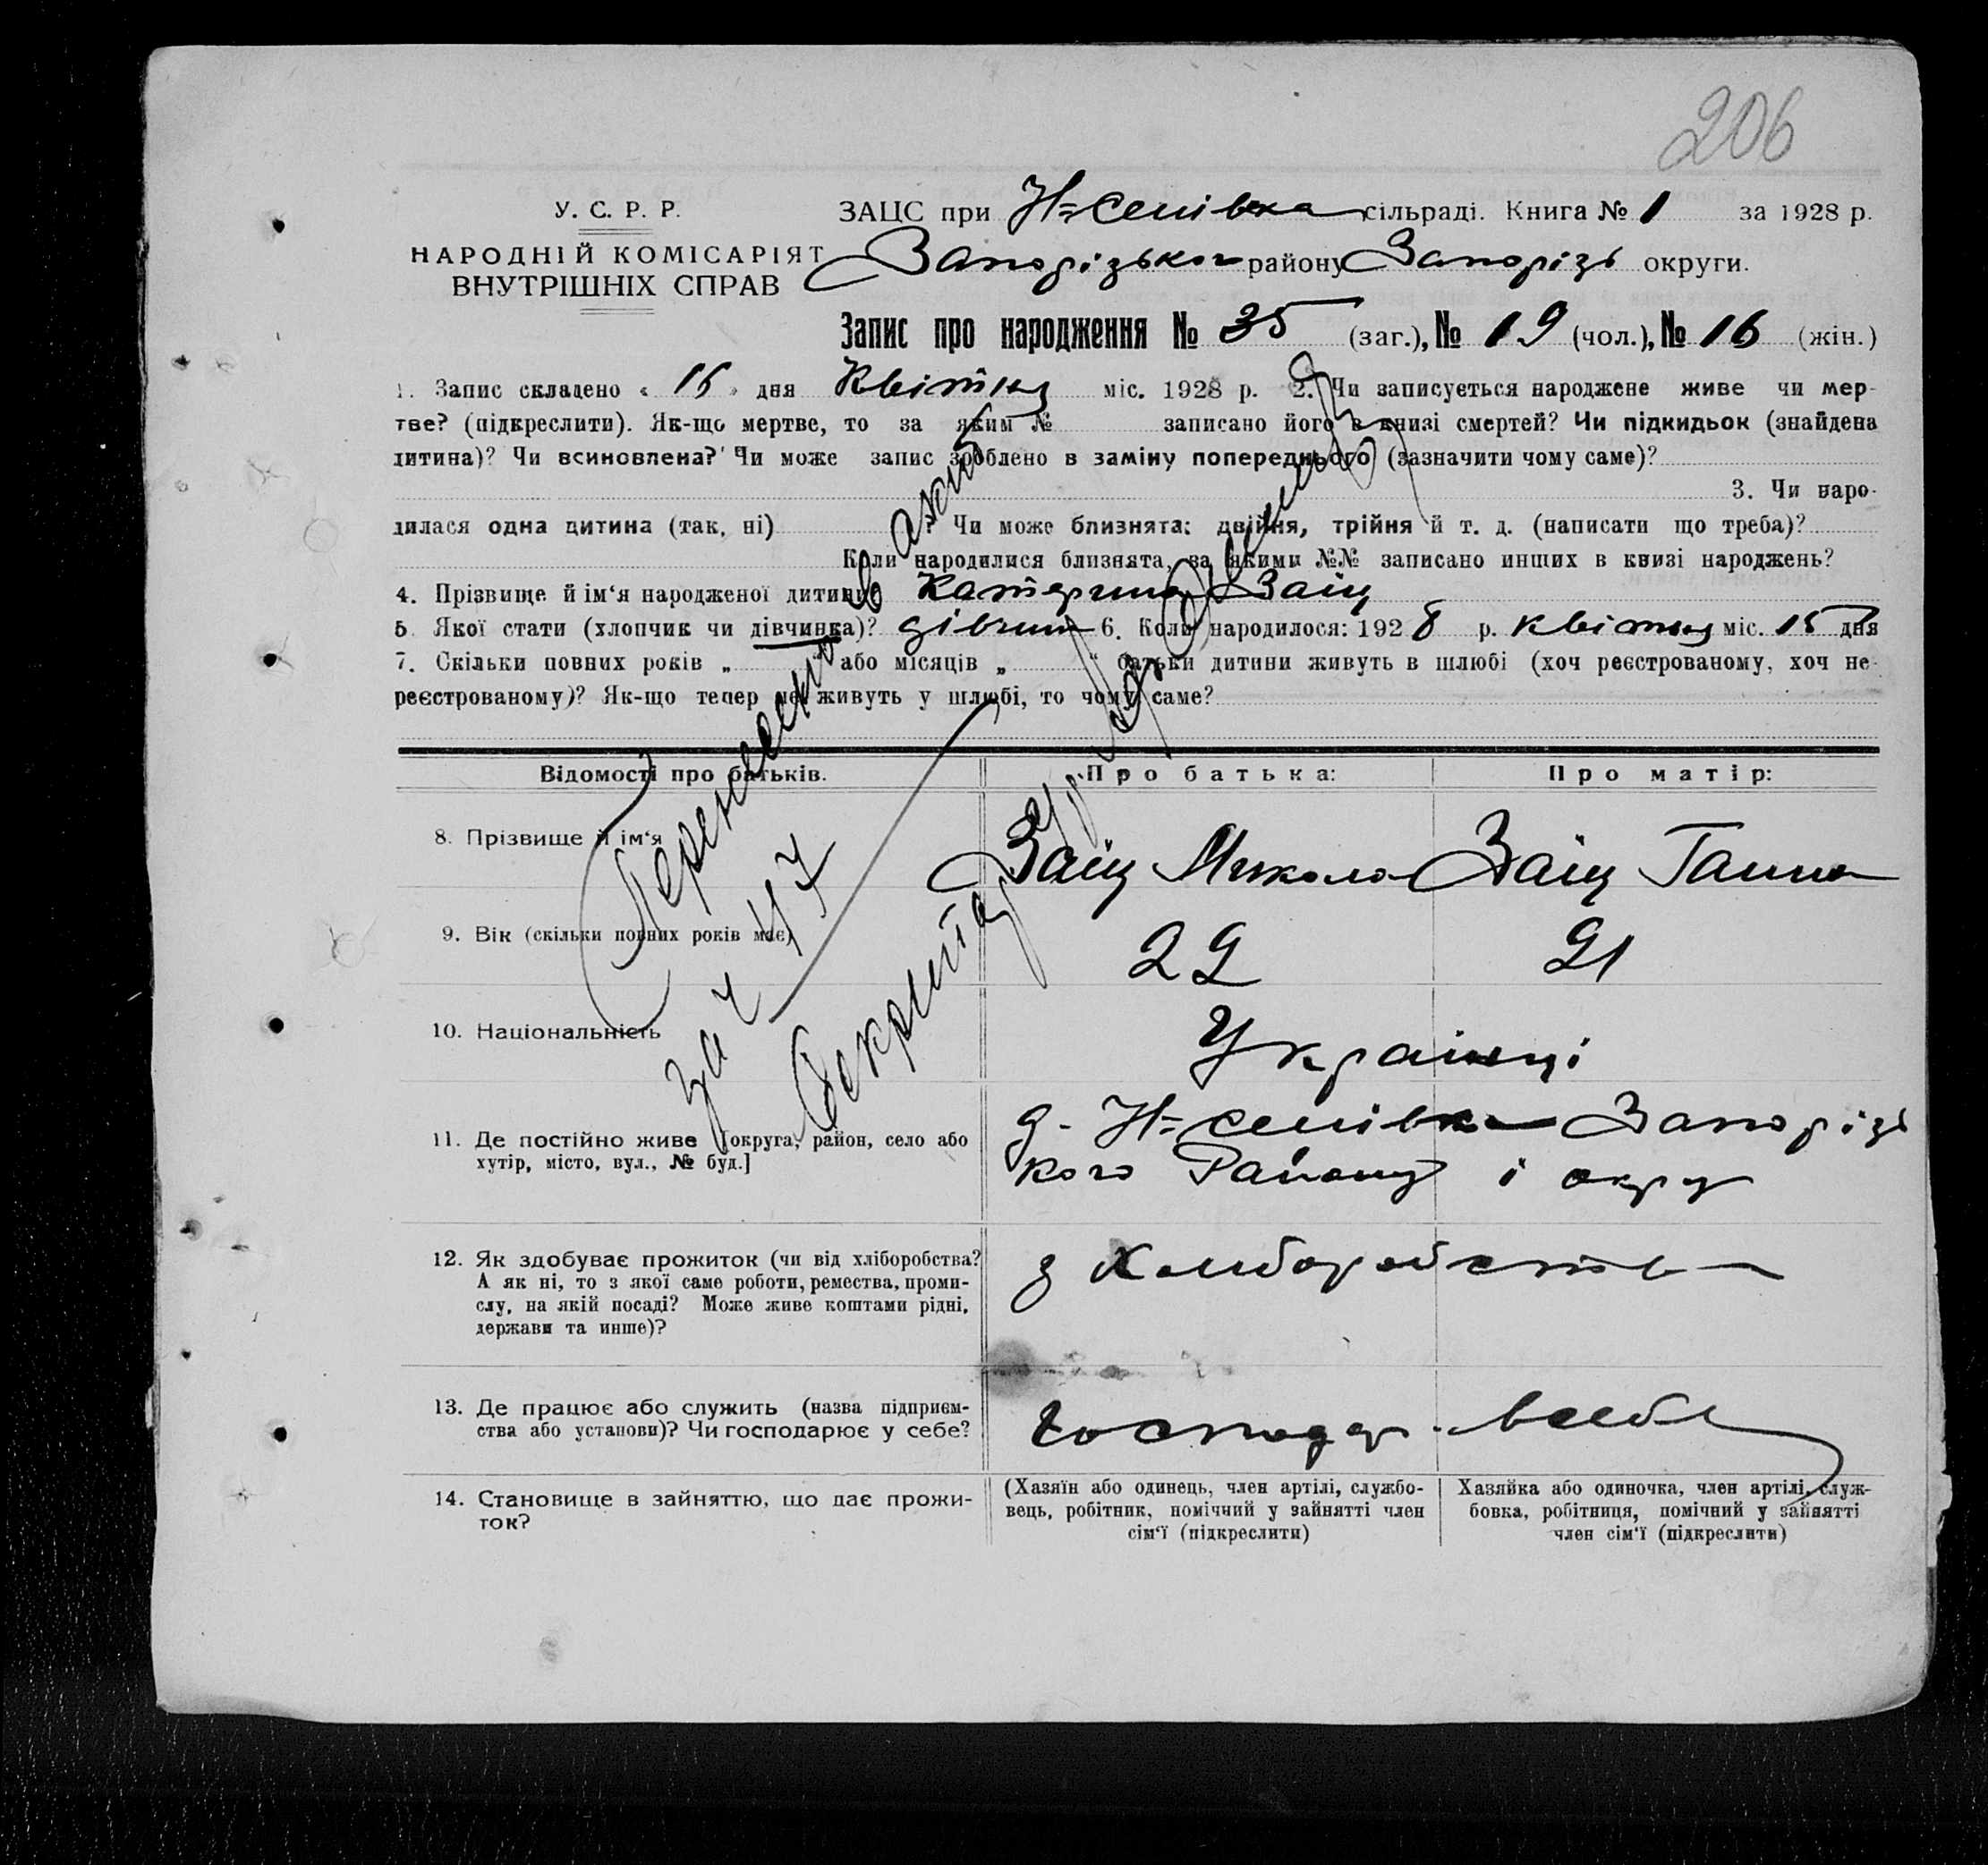 206
У. С. Р. Р.
НАРОДНІЙ КОМІСАРІЯТ
ВНУТРІШНІХ СПРАВ
ЗАЦС при сільраді. Книга № 1 за 1928 р.
Запорізького району Запорізь округи.
Запис про народження № 35 (заг.), № 19 (чол.), № 16 (жін.)
1. Запис складено « 16 » дня Квітня міс. 1928 р. 2. Чи записується народжене живе чи мер-
тве? (підкреслити). Як-що мертве, то за яким № записано його в книзі смертей? Чи підкидьок (знайдена
дитина)? Чи всиновлена? Чи може запис зроблено в заміну попереднього (зазначити чому саме)?
3. Чи наро-
дилася одна дитина (так, ні) ? Чи може близнята: двійня, трійня й т. д. (написати що треба)?
Коли народилися близнята, за якими №№ записано инших в книзі народжень?
4. Прізвище й ім‘я народженої дитини Катерина Заіц
5 Якої стати (хлопчик чи дівчинка)? дівчин 6. Коли народилося: 1928 р. квітня міс. 15 дня
7. Скільки повних років „ “ або місяців „ “ батьки дитини живуть в шлюбі (хоч реєстрованому, хоч не-
реєстрованому)? Як-що тепер не живуть у шлюбі, то чому саме?
Відомості про батьків. Про батька: Про матір:
8. Прізвище й ім‘я Заіц Микола Заіц Ганна
9. Вік (скільки повних років має) 22 21
10. Національність Украінці
11. Де постійно живе [округа, район, село або
хутір, місто, вул., № буд.]
Запорізь
кого Району і окру
12. Як здобуває прожиток (чи від хліборобства?
А як ні, то з якої саме роботи, ремества, проми-
слу, на якій посаді? Може живе коштами рідні,
держави та инше)?
з
13. Де працює або служить (назва підприєм-
ства або установи)? Чи господарює у себе?
господар. в себе
14. Становище в зайняттю, що дає прожи-
ток?
(Хазяїн або одинець, член артілі, службо-
вець, робітник, помічний у зайнятті член
сім‘ї (підкреслити)
Хазяйка або одиночка, член артілі, служ-
бовка, робітниця, помічний у зайнятті
член сім‘ї (підкреслити)
Перенесено в акт
за ч 47
Секритар